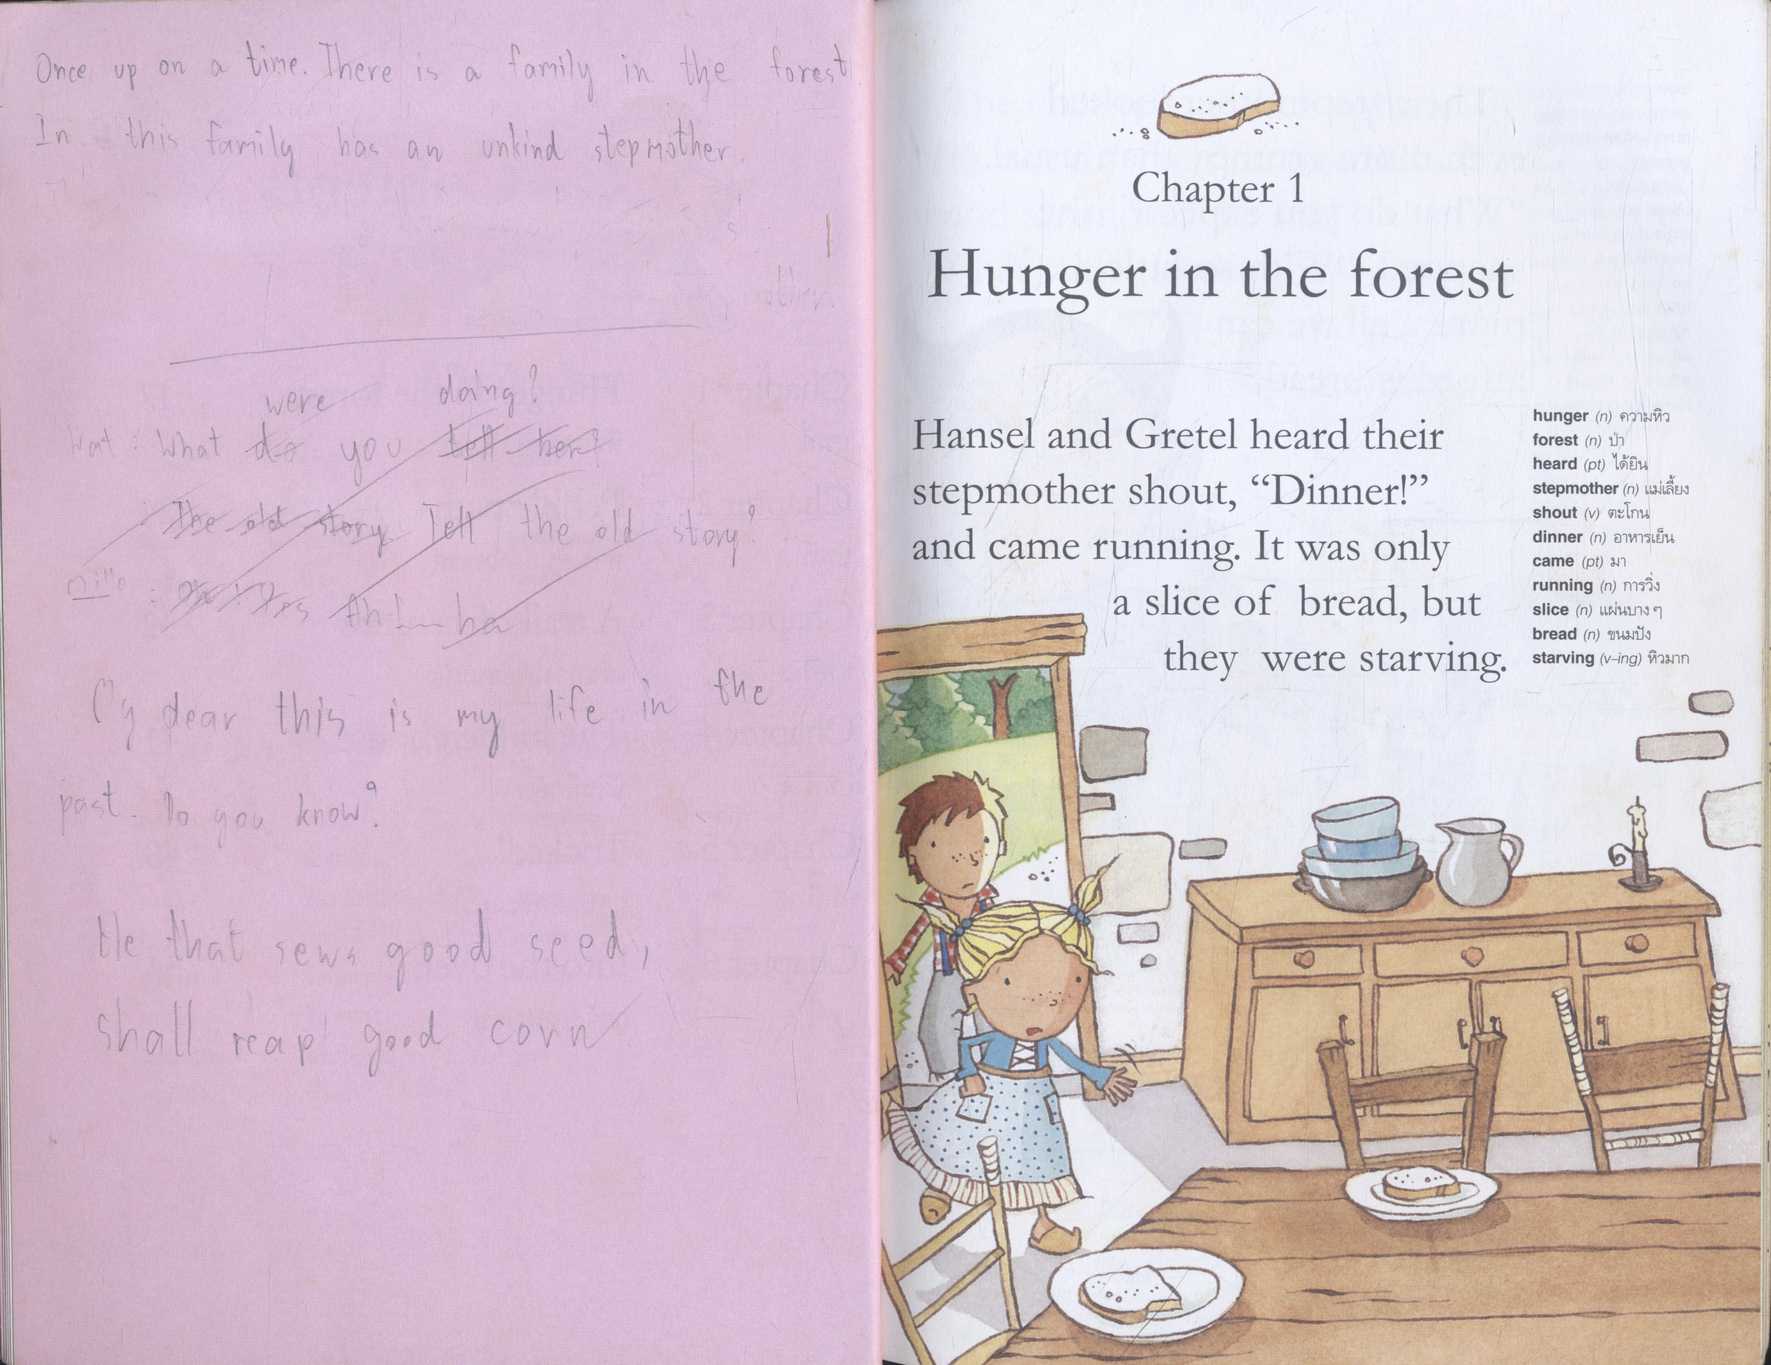 Once up on a time. There is a family in the forest
In this family has an unkind stepmother.
were doing?
Wat : What do you tell her?
The old story Tell the old story?
: Ah!... ha
my dear this is my life in the
past. Do you know?
He that sews good seed,
shall reap good corn
Chapter 1
Hunger in the forest
Hansel and Gretel heard their
stepmother shout, “Dinner!”
and came running. It was only
a slice of bread, but
they were starving.
hunger (n) ความหิว
forest (n) ป่า
heard (pt) ได้ยิน
stepmother (n) แม่เลี้ยง
shout (v) ตะโกน
dinner (n) อาหารเย็น
came (pt) มา
running (n) การวิ่ง
slice (n) แผ่นบาง ๆ
bread (n) ขนมปัง
starving (v-ing) หิวมาก